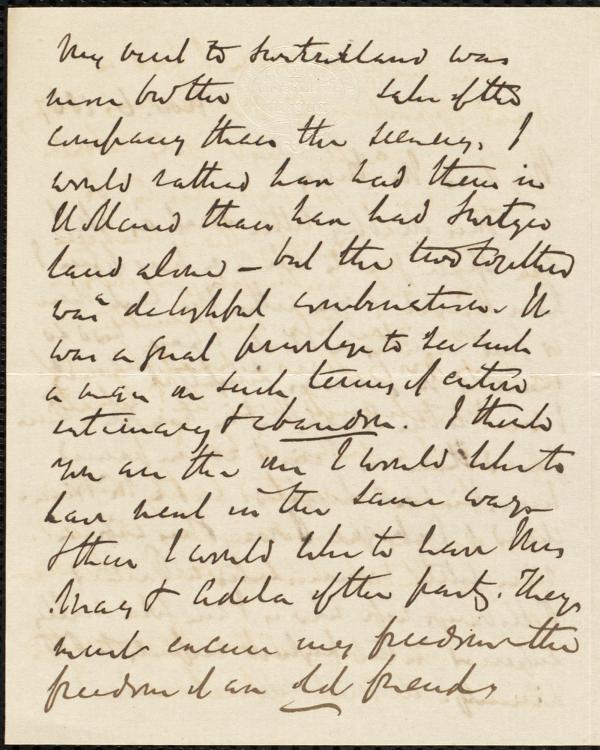 My visit to Switzerland was
more for the sake of the
company than the scenery. I
would rather have had them in
Holland than have had Switzer
land alone – but the two together
was a delightful combination. It
was a great privilege to see such
a man on such terms of entire
intimacy & abandon. I think
you are the one I would like to
have next in the same way
& then I would like to have Mrs
May & Adela of the party. They
must excuse my freedom – the
freedom of an old friend